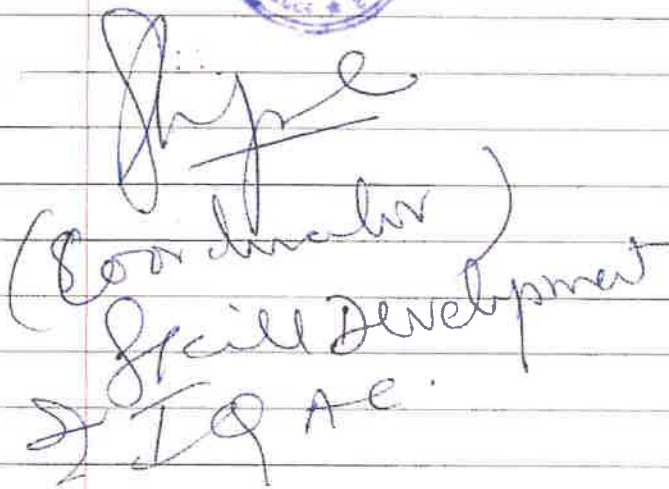 (Coordinator)
Skill Development
& IQAC.